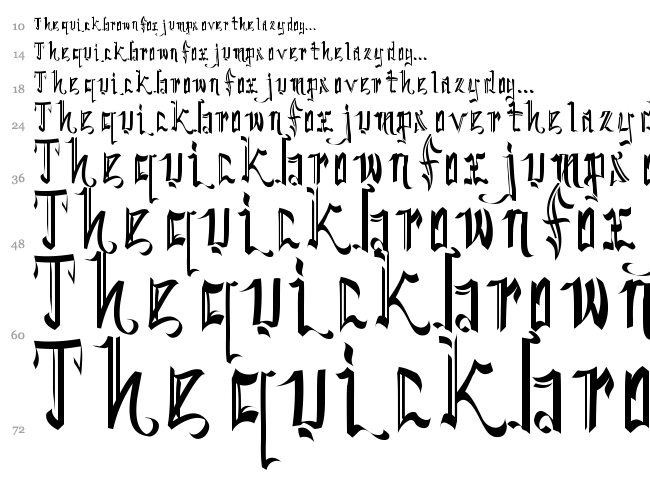 10 The quick brown fox jumps over the lazy dog...
14 The quick brown fox jumps over the lazy dog...
18 The quick brown fox jumps over the lazy dog...
24 The quick brown fox jumps over the lazy d
36 The quick brown fox jumps o
48 The quick brown fox
60 The quick brown
72 The quick bro